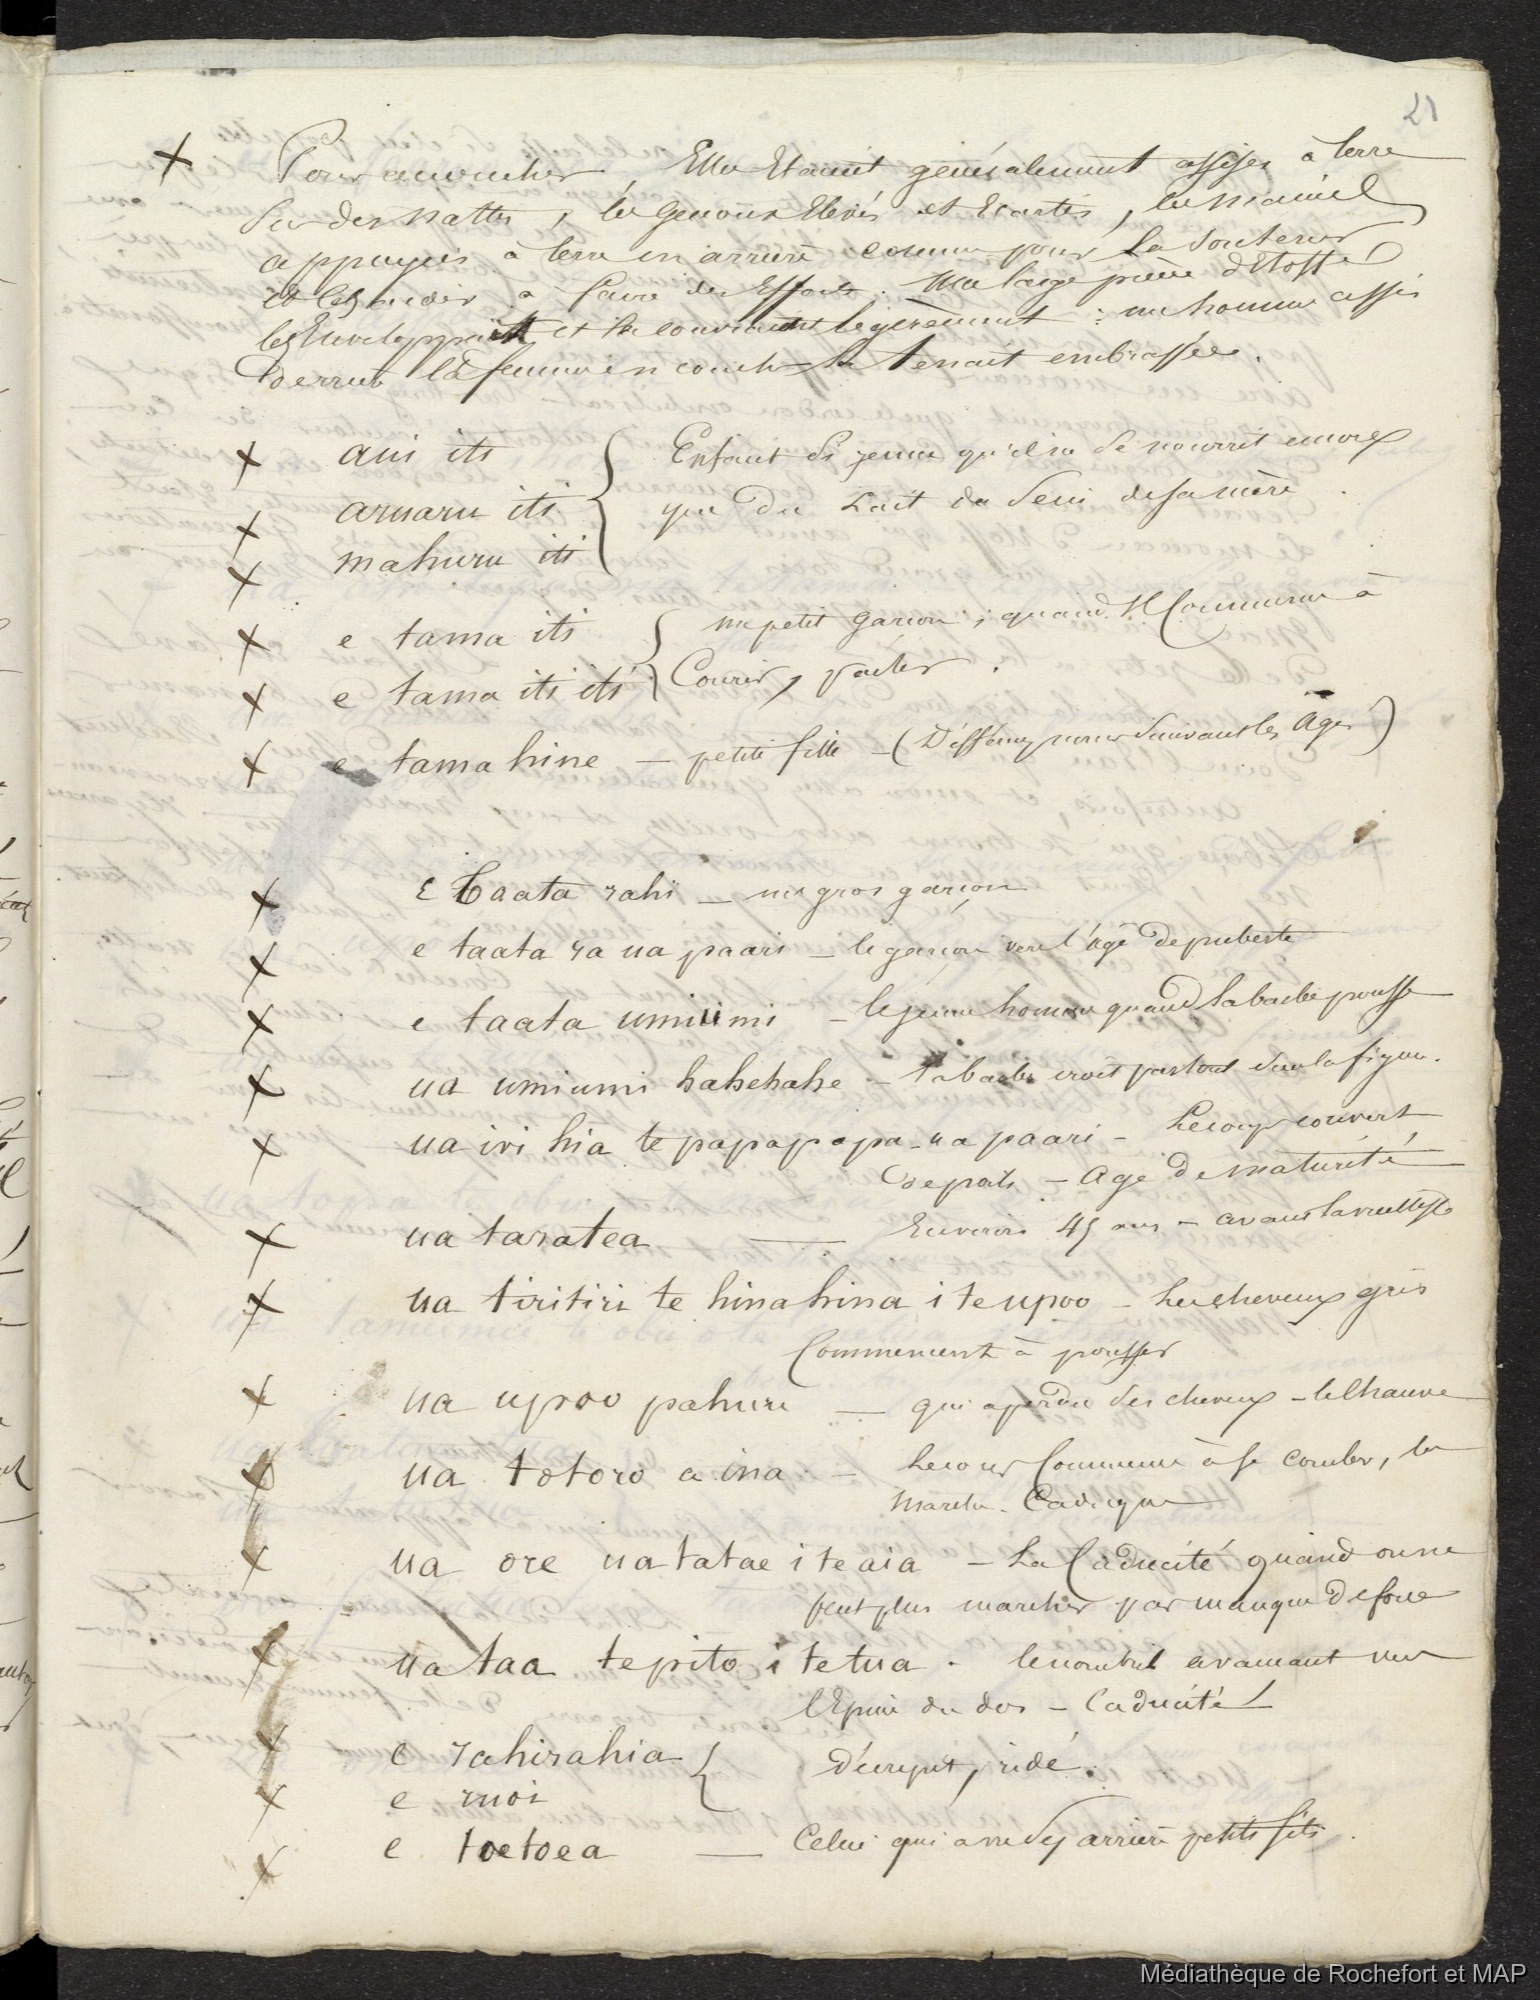 21
Pour accoucher, Elles Etaient généralement assises à terre
sur des nattes, les genoux Elevés et Ecartés, les mains
appuyées à terre en arrière comme pour la soutenir
et les aider à faire des Efforts. Une large pièce d'Etoffe
les Enveloppait et la couvrait légèrement : un homme assis
derrière la femme en couche la tenait embrassée.
aiu iti
Enfant si jeune qu'il ne se nourrit encore
aruaru iti
que du Lait du sein de sa mère.
mahuru iti
e tama iti
un petit garçon ; quand il Commence à
e tama iti iti
Courir, parler.
e tamahine — petite fille — (Différens noms suivant les âges)
E taata rahi — un gros garçon
e taata ra ua paari — le garçon vers l'age de puberté
e taata umiumi — le jeune homme quand la barbe pousse
ua umiumi hahehahe — la barbe croit partout sur la figure.
ua iri hia te papapapa - ua paari — Le corps couvert
de poils — age de maturité
ua taratea — Environ 45 ans — avant la vieillesse
ua tiritiri te hinahina i te upoo — Les cheveux gris
Commencent à pousser
ua upoo pahure — qui a perdu ses cheveux — le Chauve
ua totoro a ina — Le corps Commence à se courber, la
marche. Caduque
ua ore ua tatae i te aia — La Caducité quand on ne
peut plus marcher par manque de force
ua taa te pito i te tua . le nombril avamant vers
l'Epine du dos — Caducité
e rahirahia
décrépit, ridé.
e ruoi
e toetoea — Celui qui a vu des arrière petits fils.
Médiathèque de Rochefort et MAP